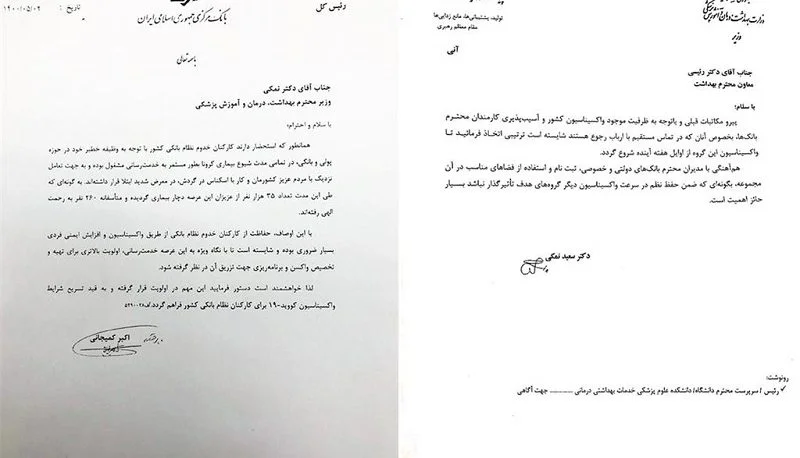 رئیس کل
بانک مرکزی جمهوری اسلامی ایران
تاریخ : ۱۴۰۰/۰۵/۰۲
باسمه تعالی
جناب آقای دکتر نمکی
وزیر محترم بهداشت، درمان و آموزش پزشکی
با سلام و احترام؛
همانطور که استحضار دارند کارکنان خدوم نظام بانکی کشور با توجه به وظیفه خطیر خود در حوزه
پولی و بانکی، در تمامی مدت شیوع بیماری کرونا بطور مستمر به خدمت‌رسانی مشغول بوده و به جهت تعامل
نزدیک با مردم عزیز کشورمان و کار با اسکناس در گردش، در معرض شدید ابتلا قرار داشته‌اند. به گونه‌ای که
طی این مدت تعداد ۳۵ هزار نفر از عزیزان این عرصه دچار بیماری گردیده و متأسفانه ۲۶۰ نفر به رحمت
الهی رفته‌اند.
با این اوصاف، حفاظت از کارکنان خدوم نظام بانکی از طریق واکسیناسیون و افزایش ایمنی فردی
بسیار ضروری بوده و شایسته است تا با نگاه ویژه به این عرصه خدمت‌رسانی، اولویت بالاتری برای تهیه و
تخصیص واکسن و برنامه‌ریزی جهت تزریق آن در نظر گرفته شود.
لذا خواهشمند است دستور فرمایید این مهم در اولویت قرار گرفته و به قید تسریع شرایط
واکسیناسیون کووید-۱۹ برای کارکنان نظام بانکی کشور فراهم گردد.
اکبر کمیجانی
وزارت بهداشت، درمان و آموزش پزشکی
وزیر
تولید، پشتیبانی‌ها، مانع زدایی‌ها
مقام معظم رهبری
آنی
جناب آقای دکتر رئیسی
معاون محترم بهداشت
با سلام؛
پیرو مکاتبات قبلی و باتوجه به ظرفیت موجود واکسیناسیون کشور و آسیب‌پذیری کارمندان محترم
بانک‌ها، بخصوص آنان که در تماس مستقیم با ارباب رجوع هستند شایسته است ترتیبی اتخاذ فرمائید تا
واکسیناسیون این گروه از اوایل هفته آینده شروع گردد.
هم‌آهنگی با مدیران محترم بانک‌های دولتی و خصوصی، ثبت نام و استفاده از فضاهای مناسب در آن
مجموعه، بگونه‌ای که ضمن حفظ نظم در سرعت واکسیناسیون دیگر گروه‌های هدف تأثیرگذار نباشد بسیار
حائز اهمیت است.
دکتر سعید نمکی
رونوشت:
✓ رئیس / سرپرست محترم دانشگاه/ دانشکده علوم پزشکی خدمات بهداشتی درمانی .......... جهت آگاهی